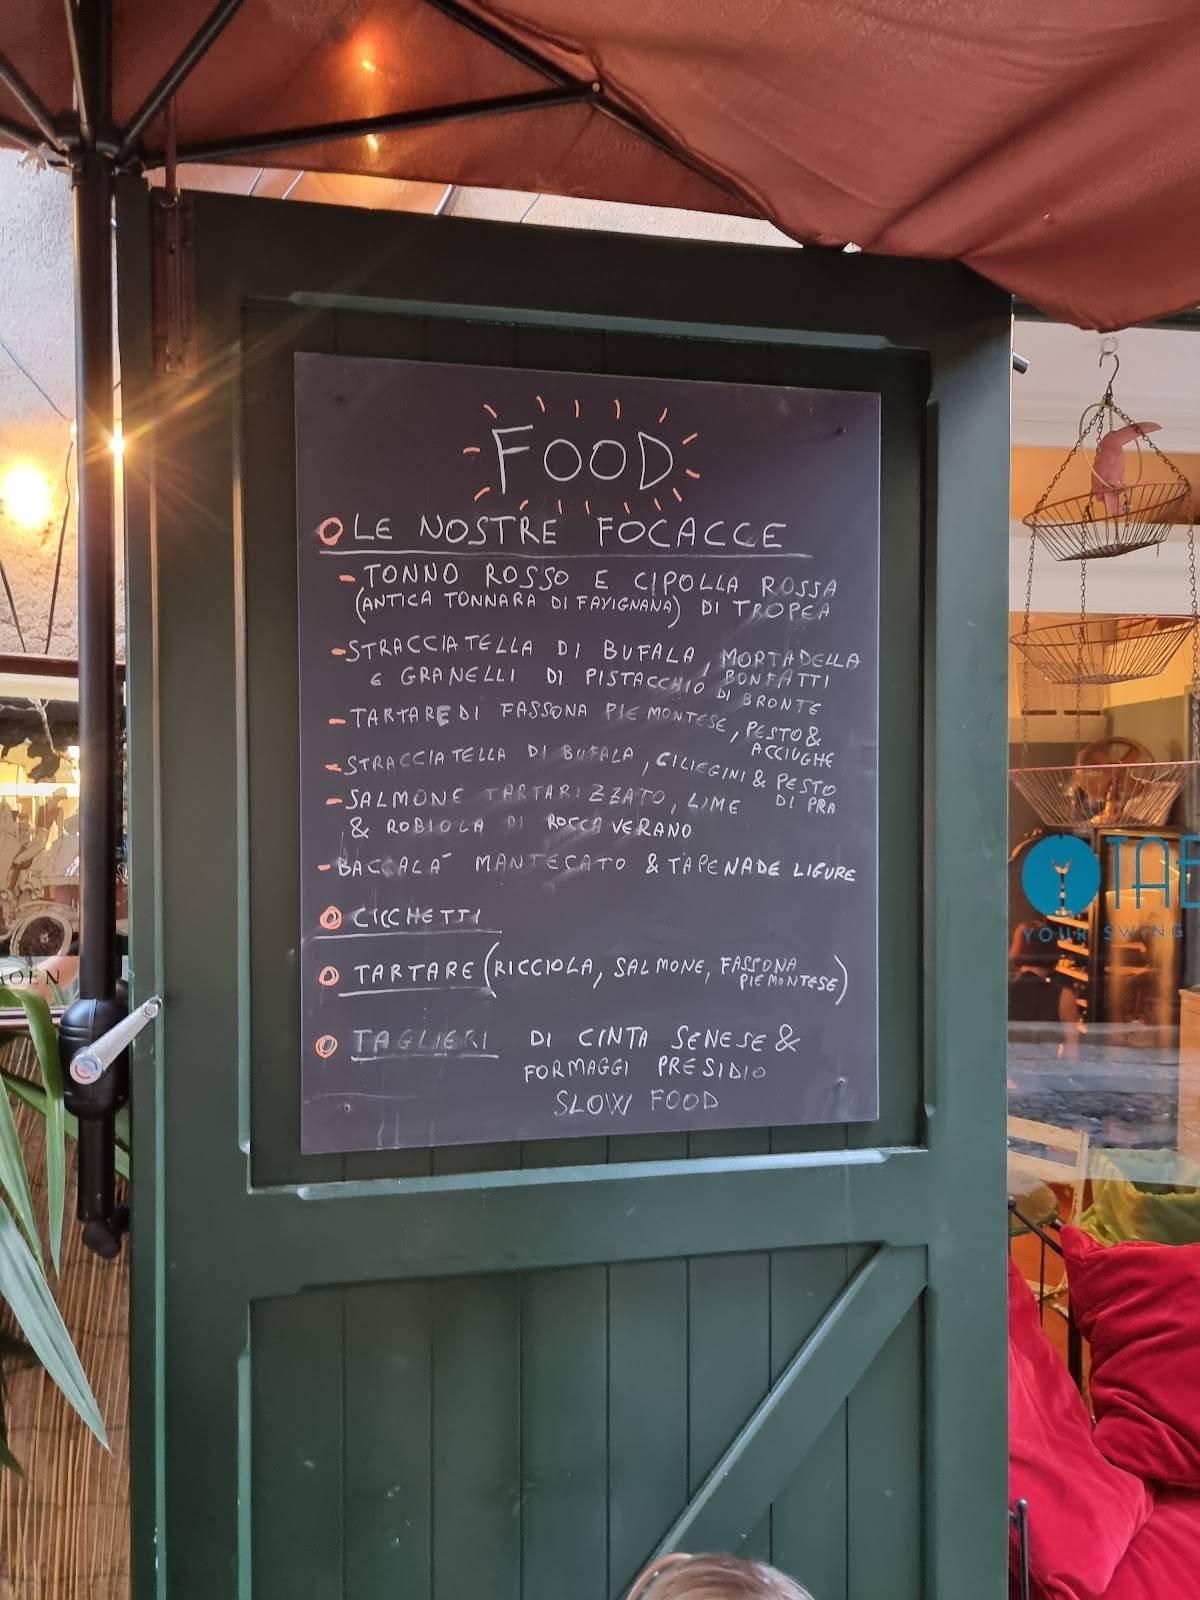 FOOD
LE NOSTRE FOCACCE
- TONNO ROSSO E CIPOLLA ROSSA
(ANTICA TONNARA DI FAVIGNANA) DI TROPEA
- STRACCIATELLA DI BUFALA, MORTADELLA
E GRANELLI DI PISTACCHIO BONFATTI
DI BRONTE
- TARTARE DI FASSONA PIEMONTESE, PESTO &
ACCIUGHE
- STRACCIATELLA DI BUFALA, CILIEGINI & PESTO
DI PRA
- SALMONE TARTARIZZATO, LIME
& ROBIOLA DI ROCCAVERANO
- BACCALA' MANTECATO & TAPENADE LIGURE
CICCHETTI
TARTARE (RICCIOLA, SALMONE, FASSONA
PIEMONTESE)
TAGLIERI DI CINTA SENESE &
FORMAGGI PRESIDIO
SLOW FOOD
YOUR SWING